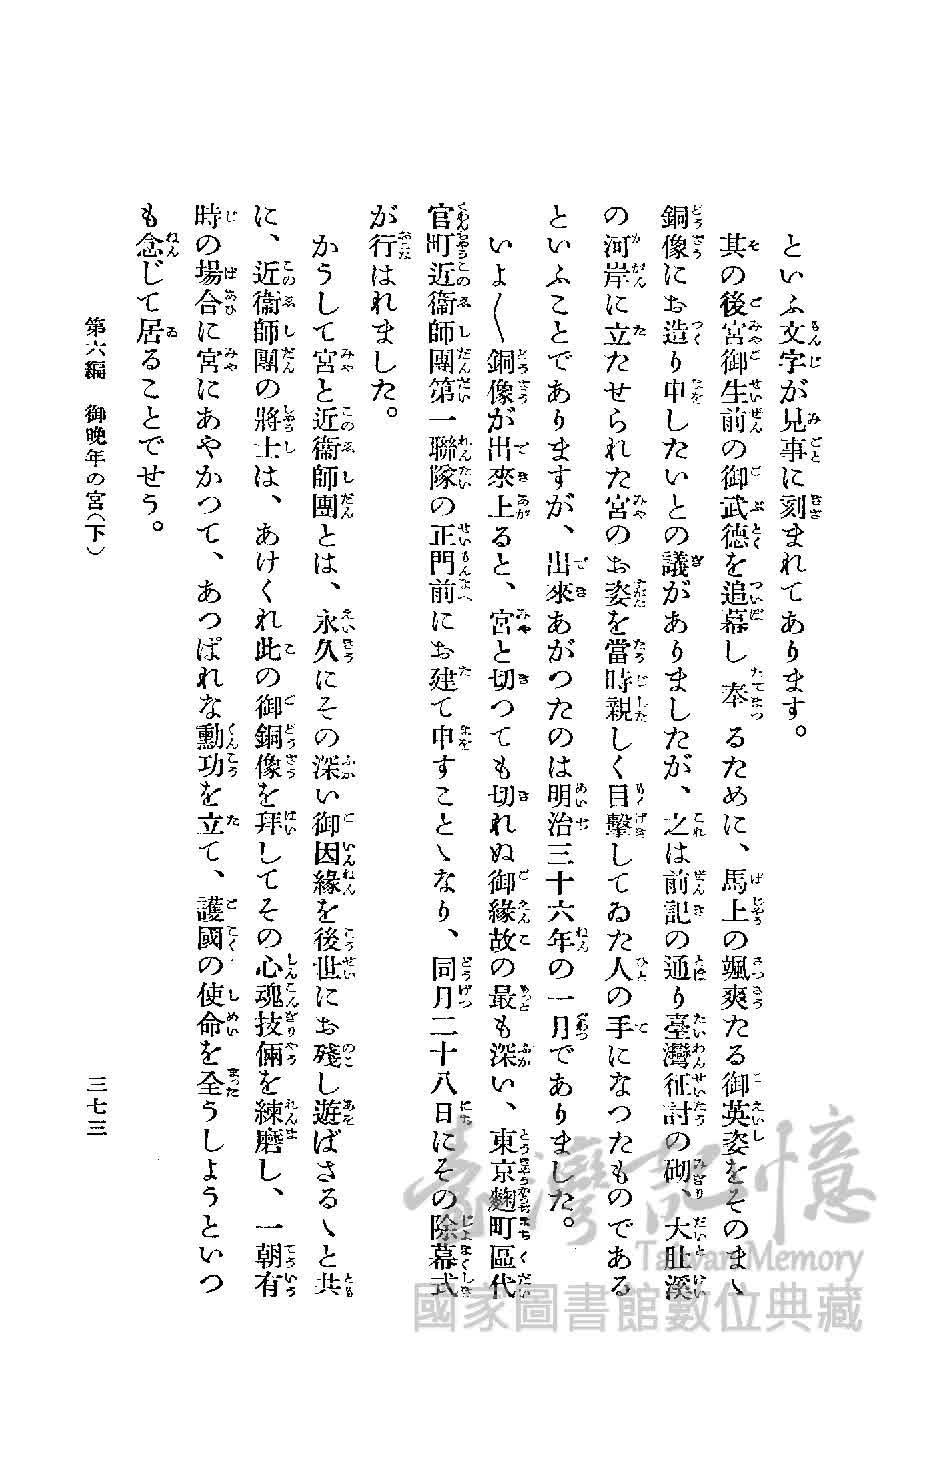 といふ文字が見事に刻まれてあります。
其の後宮御生前の御武德を追慕し奉るために、馬上の颯爽たる御英姿をそのまゝ
銅像にお造り申したいとの議がありましたが、之は前記の通り臺灣征討の砌、大肚溪
の河岸に立たせられた宮のお姿を當時親しく目擊してゐた人の手になつたものである
といふことでありますが、出來あがつたのは明治三十六年の一月でありました。
いよ〱銅像が出來上ると、宮と切つても切れぬ御緣故の最も深い、東京麴町區代
官町近衞師團第一聯隊の正門前にお建て申すことゝなり、同月二十八日にその除幕式
が行はれました。
かうして宮と近衞師團とは、永久にその深い御因緣を後世にお殘し遊ばさるゝと共
に、近衞師團の將士は、あけくれ此の御銅像を拜してその心魂技倆を練磨し、一朝有
時の場合に宮にあやかつて、あつぱれな勳功を立て、護國の使命を全うしようといつ
も念じて居ることでせう。
第六編 御晩年の宮(下)
三七三
臺灣記憶
Taiwan Memory
國家圖書館數位典藏